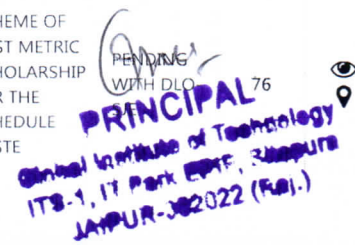 HEME OF
ST METRIC
HOLARSHIP
R THE
HEDULE
STE
PENDING
WITH DLO
76
PRINCIPAL
Institute of Technology
ITS-1, IT Park
JAIPUR-302022 (Raj.)